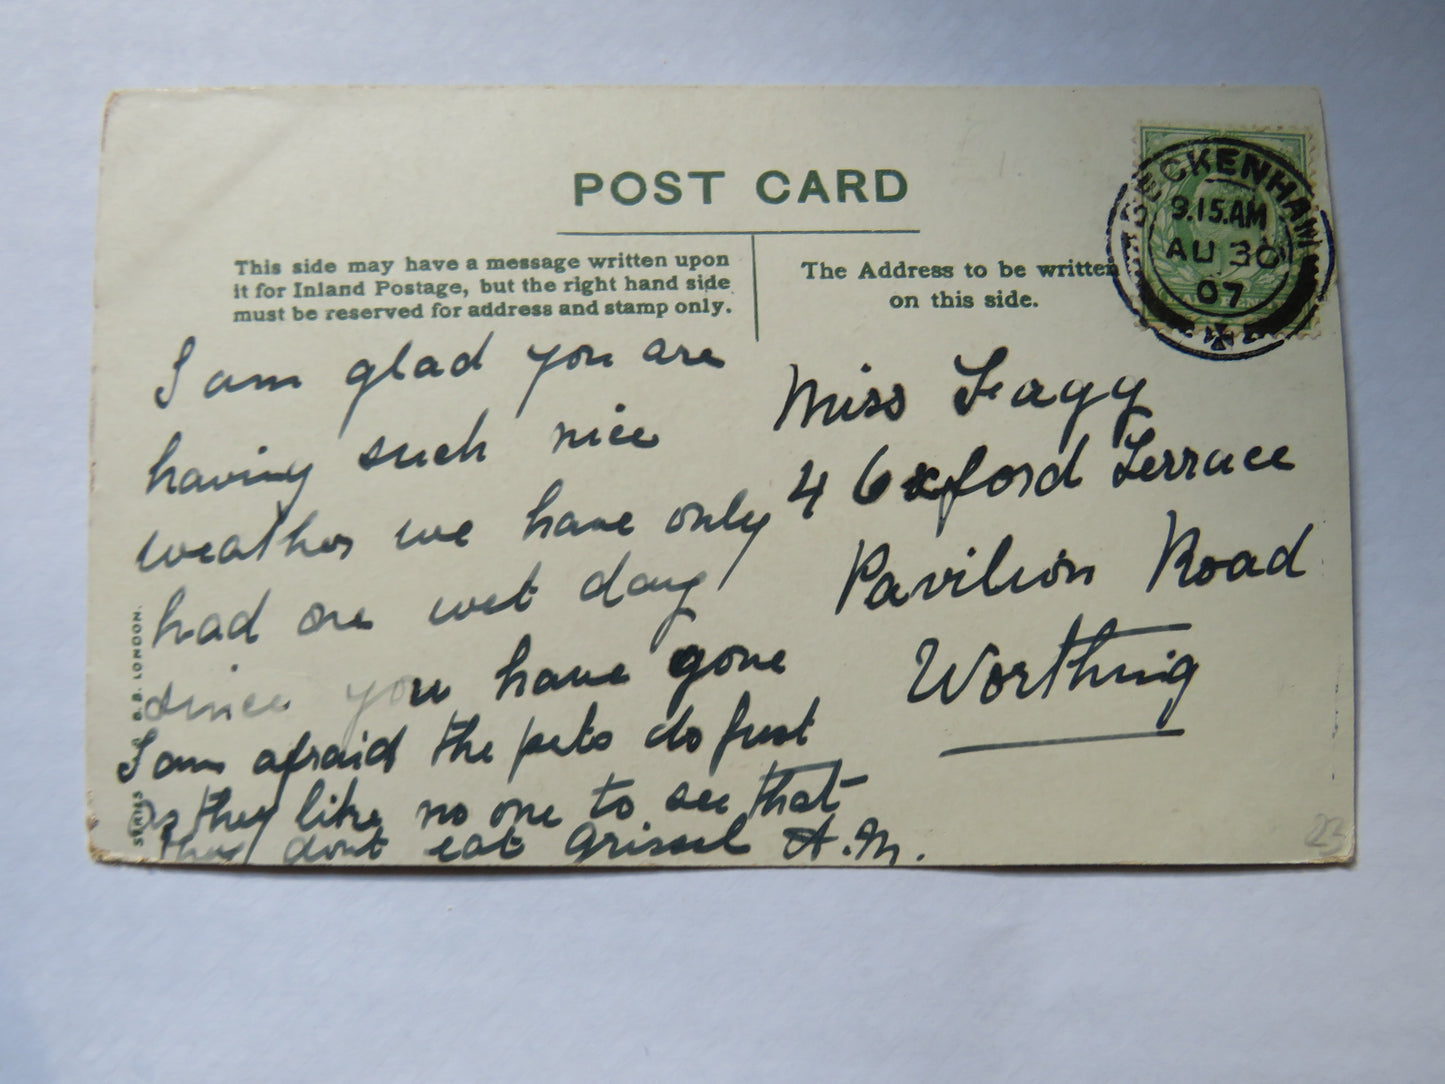 POST CARD
This side may have a message written upon
it for Inland Postage, but the right hand side
must be reserved for address and stamp only.
The Address to be written
on this side.
BECKENHAM
9.15.AM
AU 30
07
I am glad you are
having such nice
weather we have only
had one wet day
since you have gone
I am afraid the pets do fret
as they like no one to see that
they dont eat Grissel A.M.
Miss Fagg
4 Oxford Terrace
Pavilion Road
Worthing
SERIES B.B. LONDON.
23